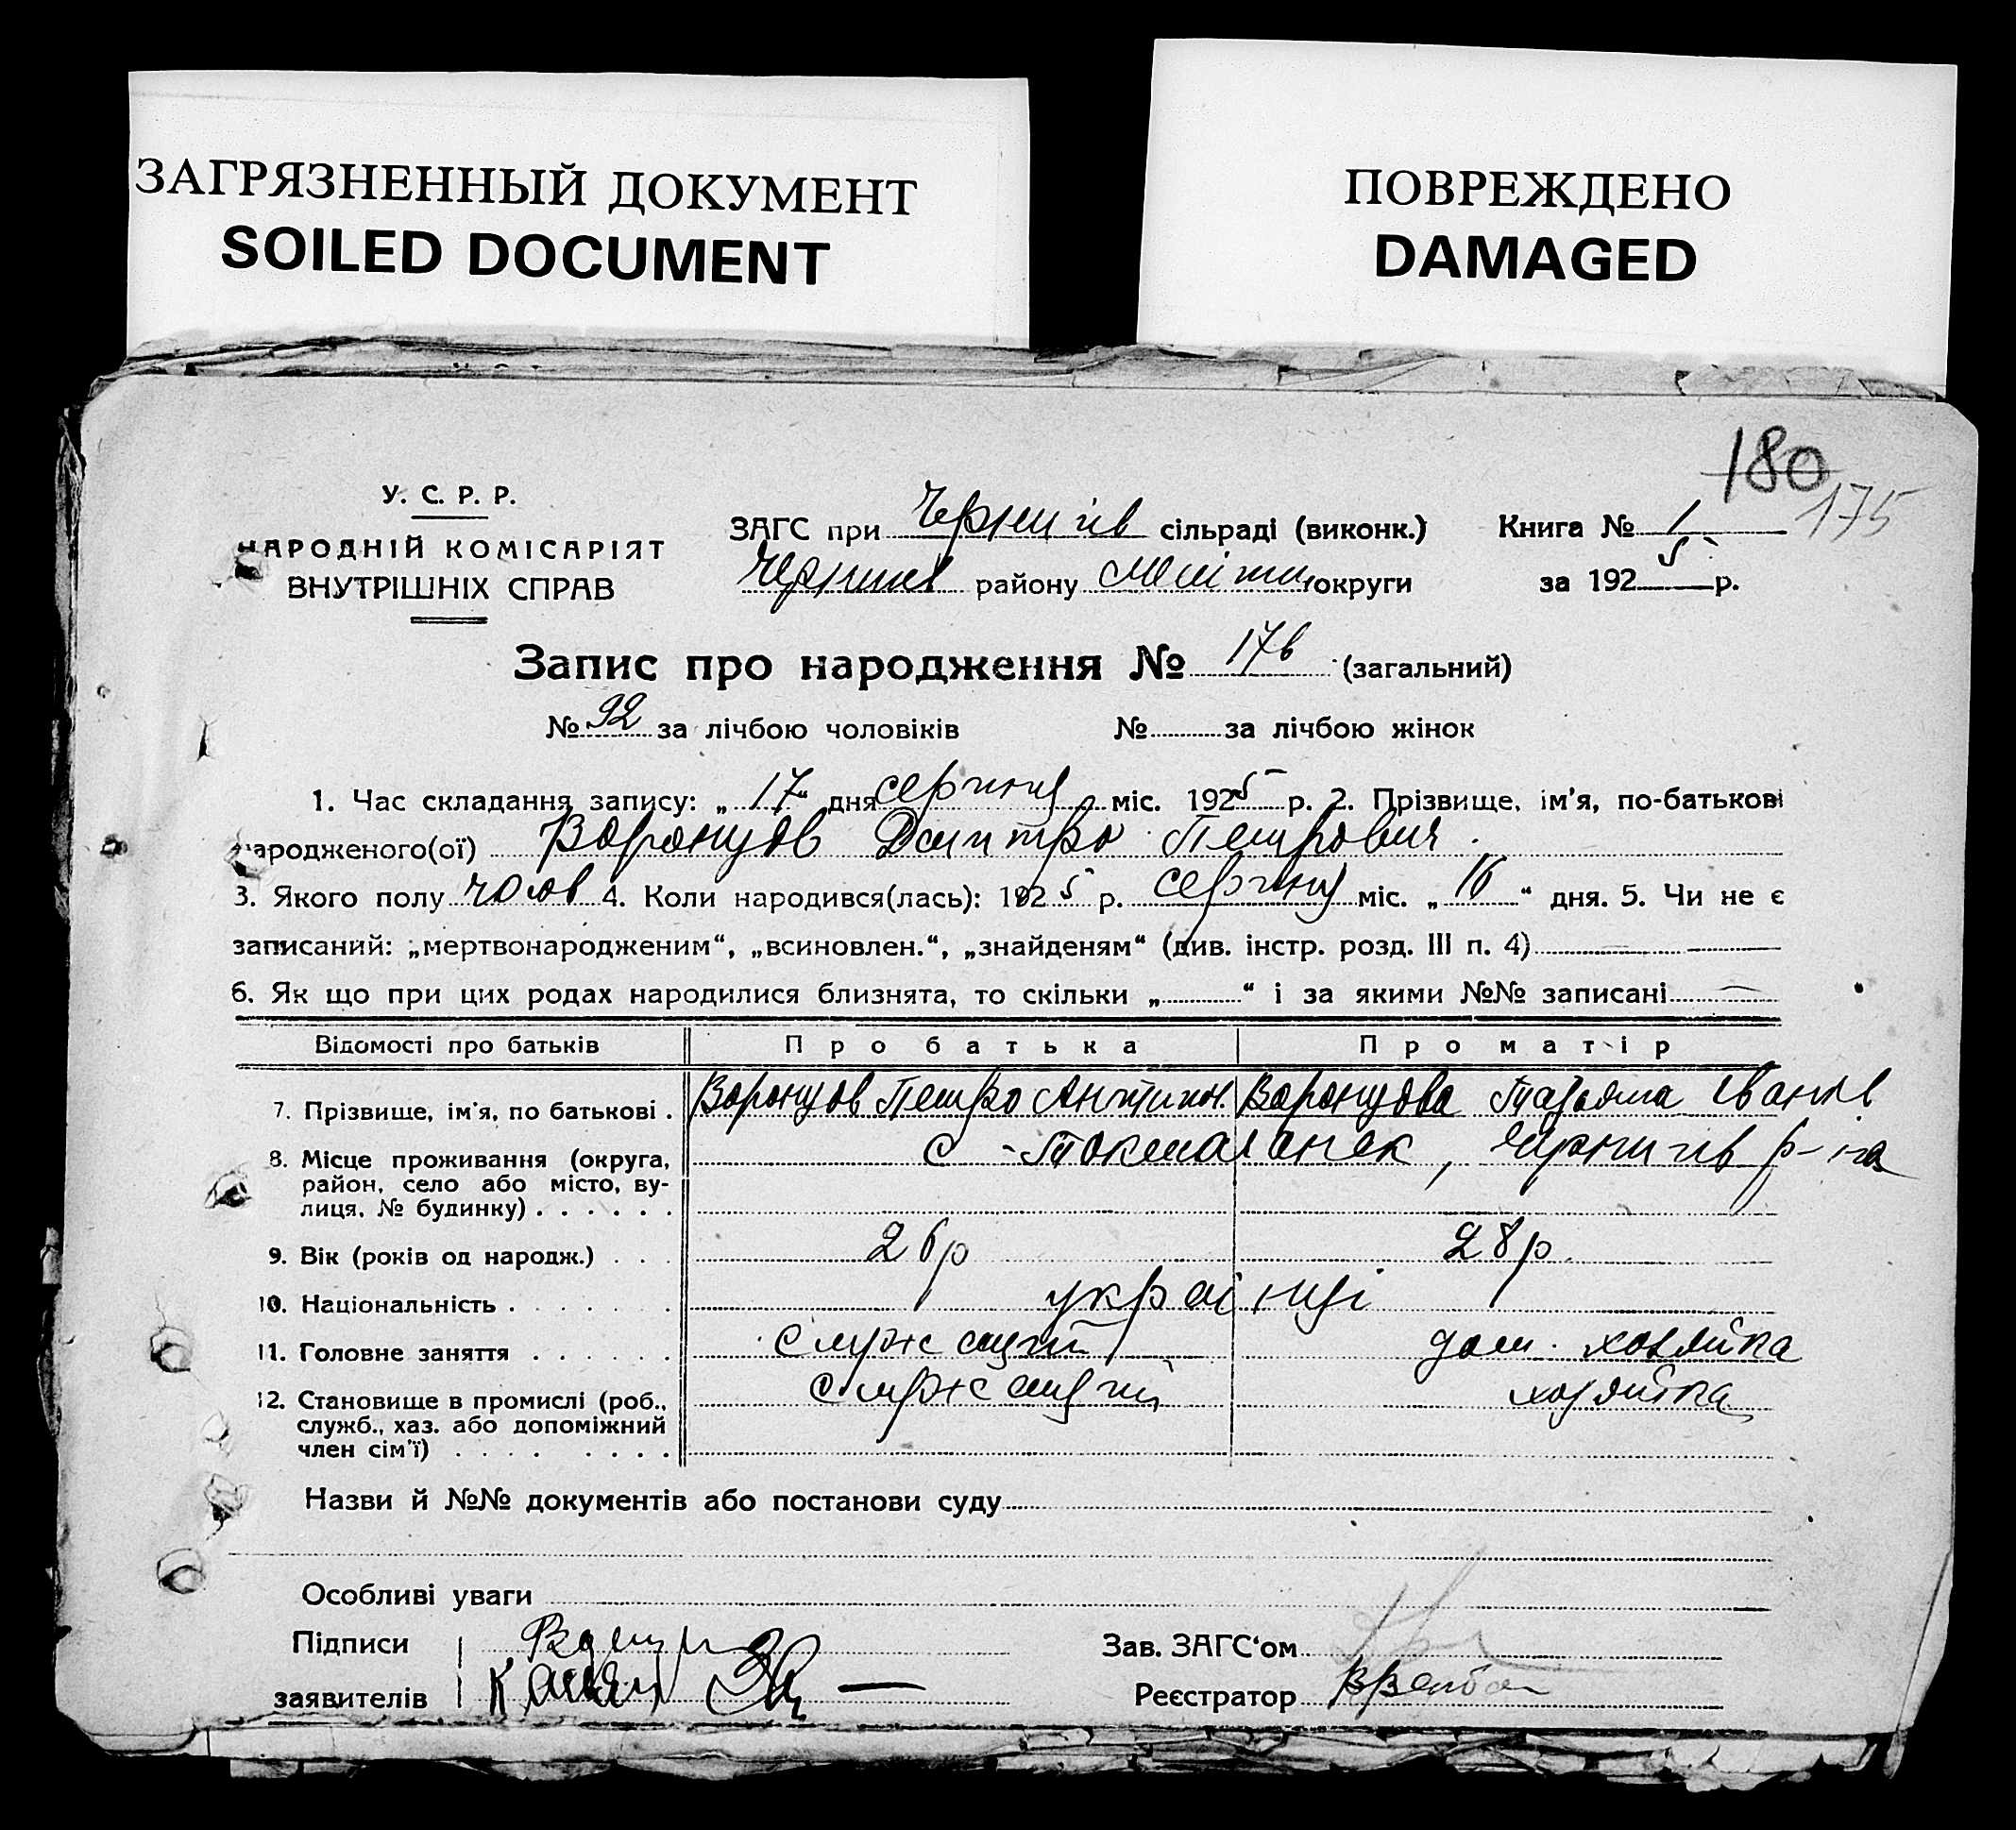 ЗАГРЯЗНЕННЫЙ ДОКУМЕНТ
SOILED DOCUMENT
ПОВРЕЖДЕНО
DAMAGED
180
175
У. С. Р. Р.
НАРОДНІЙ КОМІСАРІЯТ
ВНУТРІШНІХ СПРАВ
ЗАГС при Чернигів сільраді (виконк.) Книга № 1
Чернигів району Меліт округи за 1925 р.
Запис про народження № 176 (загальний)
№ 92 за лічбою чоловіків № за лічбою жінок
1. Час складання запису: „17“ дня серпня міс. 1925 р. 2. Прізвище, ім'я, по-батькові
народженого(ої) Воронцов Дмитро Петрович.
3. Якого полу чолов 4. Коли народився(лась): 1925 р. серпня міс. „16“ дня. 5. Чи не є
записаний: „мертвонародженим“, „всиновлен.“, „знайденям“ (див. інстр. розд. III п. 4) —
6. Як що при цих родах народилися близнята, то скільки „ “ і за якими №№ записані —
Відомості про батьків Про батька Про матір
7. Прізвище, ім'я, по батькові . Воронцов Петро Воронцова Іванів
8. Місце проживання (округа, с. Токмачанск, Чернигів р-на
район, село або місто, ву-
лиця, № будинку) . . . . . .
9. Вік (років од народж.) . . . 26 р 28 р.
10. Національність . . . . . . українці
11. Головне заняття . . . . . . служащий дом. хозяйка
12. Становище в промислі (роб., служащий хозяйка
служб., хаз. або допоміжний
член сім'ї) . . . . . . . .
Назви й №№ документів або постанови суду
Особливі уваги
Підписи Зав. ЗАГС'ом
заявителів Реєстратор